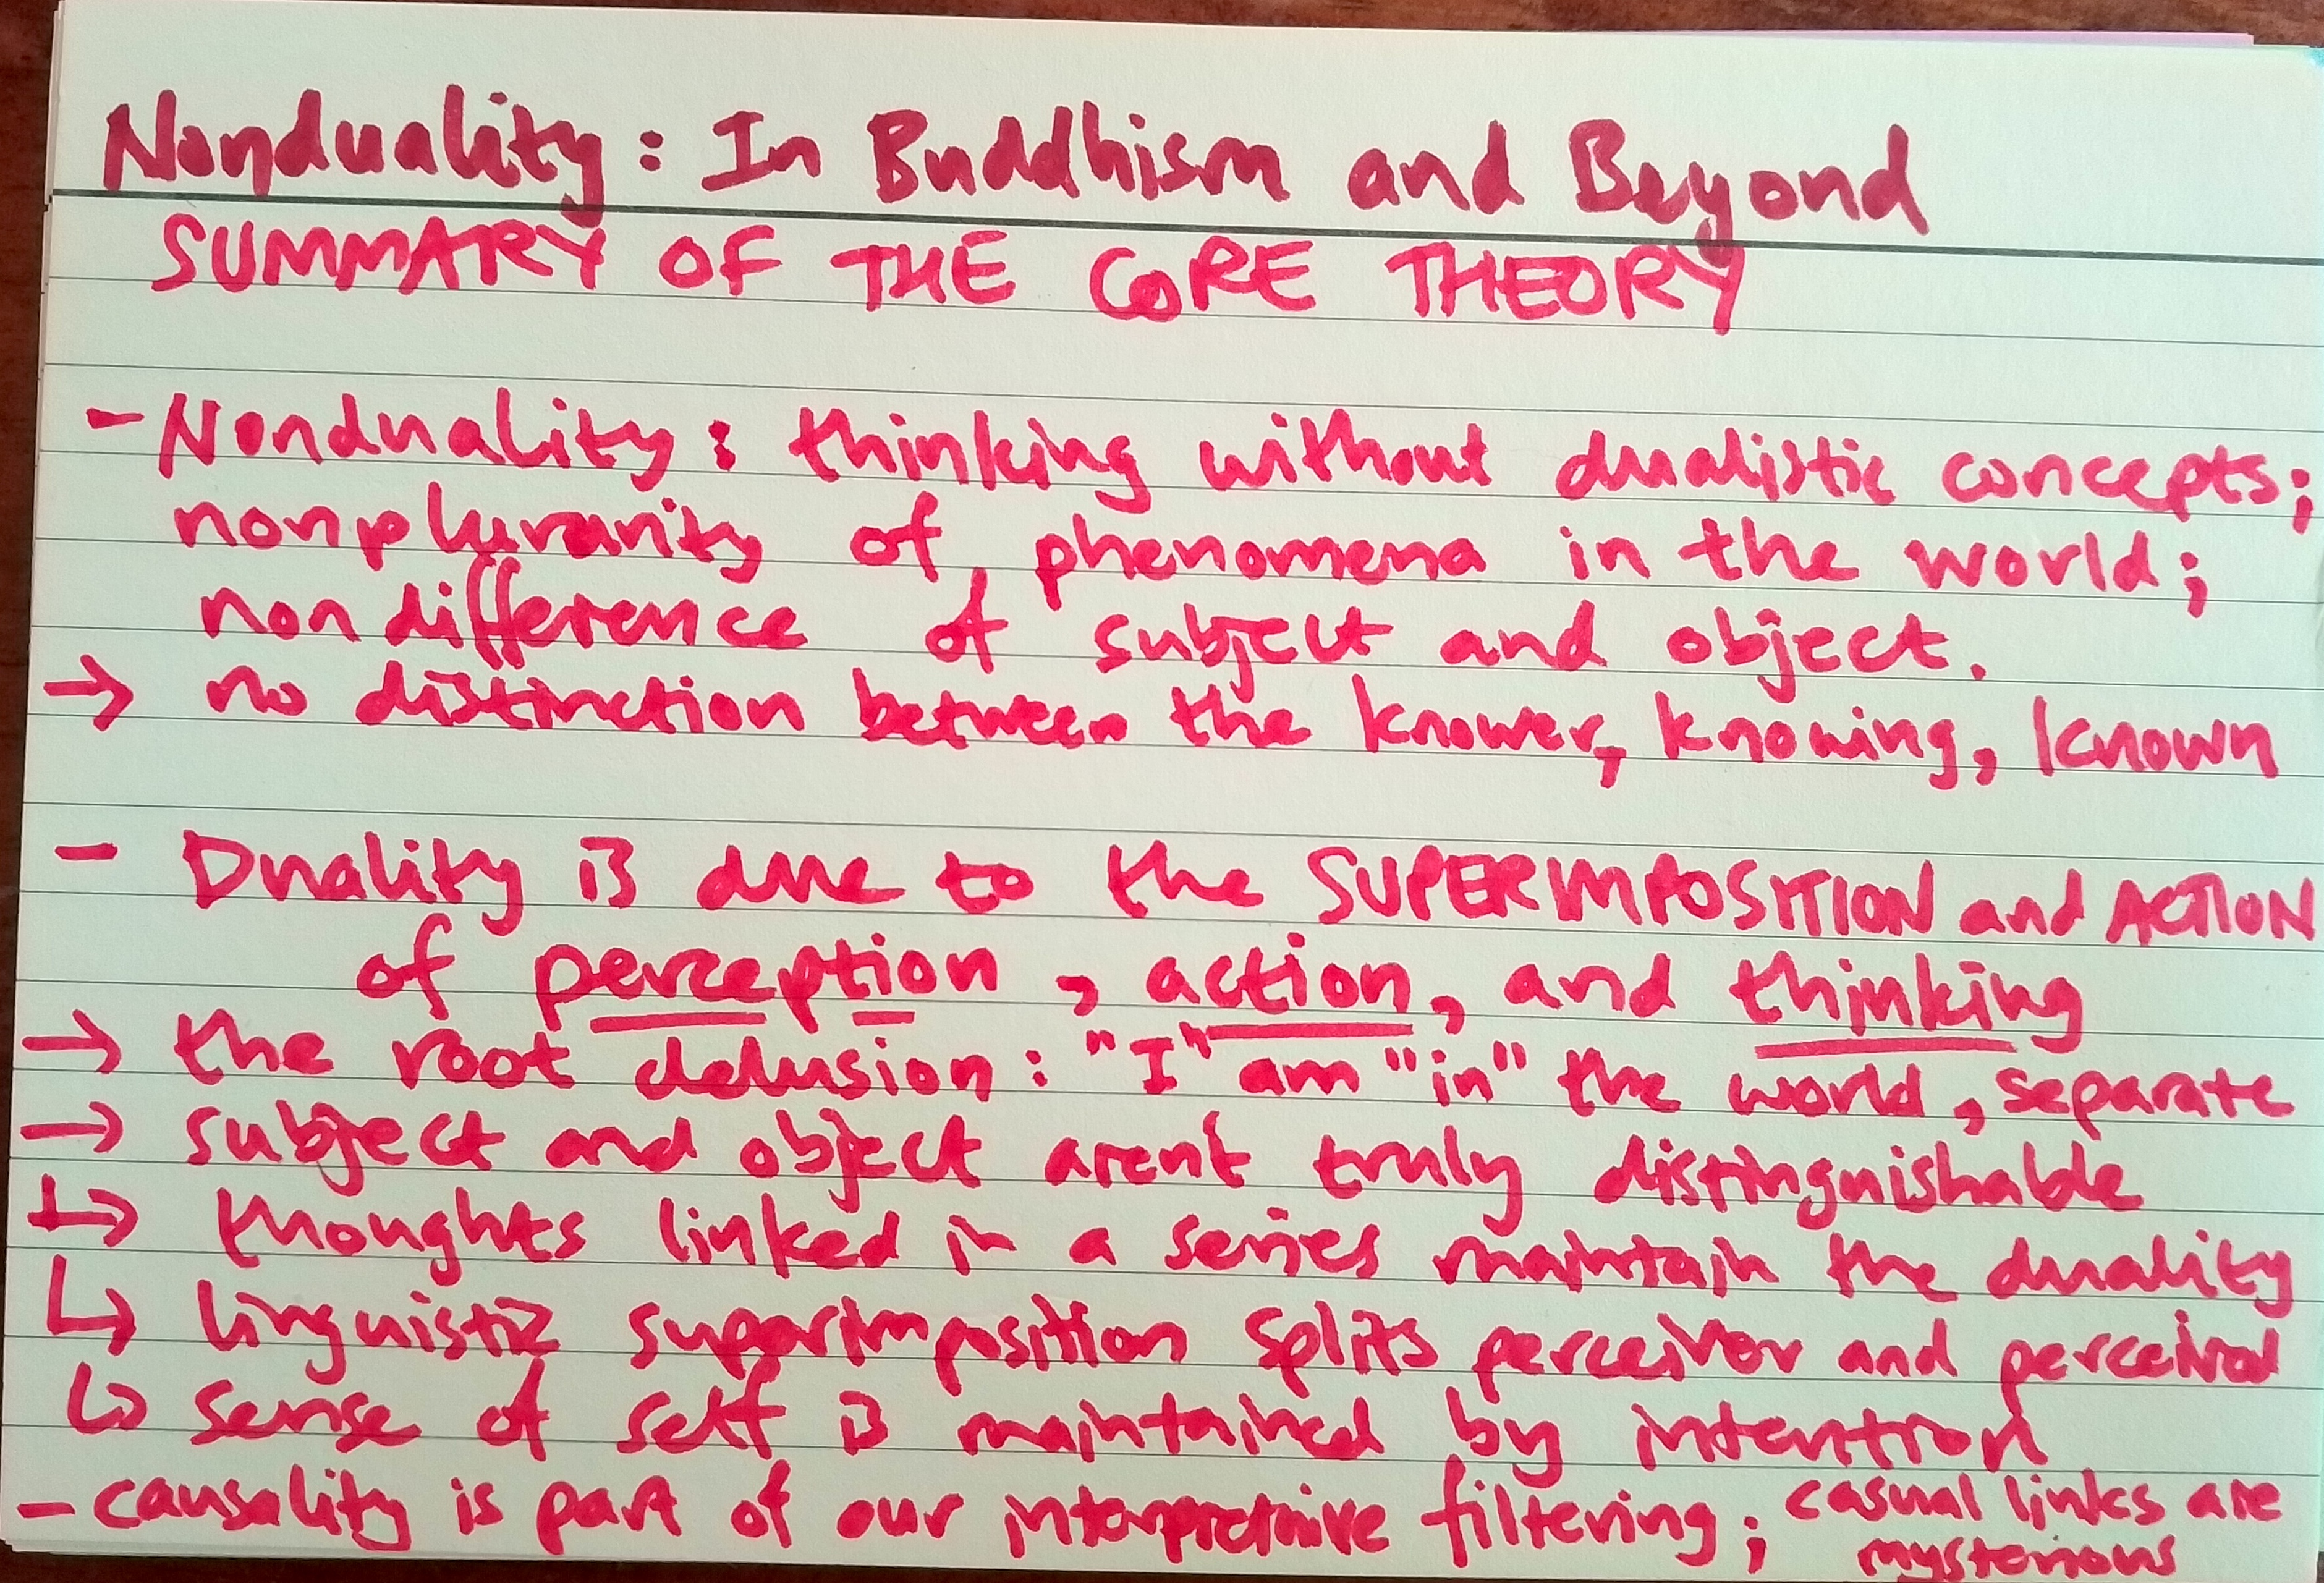 Nonduality: In Buddhism and Beyond
SUMMARY OF THE CORE THEORY
- Nonduality: thinking without dualistic concepts;
nonplurarity of phenomena in the world;
nondifference of subject and object.
→ no distinction between the knower, knowing, known
- Duality is due to the SUPERIMPOSITION and ACTION
of perception, action, and thinking
→ the root delusion: "I" am "in" the world, separate
→ subject and object arent truly distinguishable
↳ thoughts linked in a series maintain the duality
↳ linguistic superimposition splits perceiver and perceived
↳ sense of self is maintained by intention
- causality is part of our interpretative filtering; casual links are
mysterious